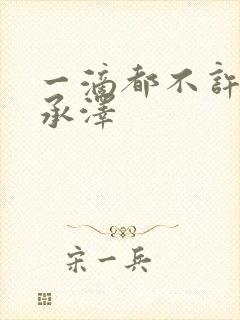 一滴都不許
承澤
宋一兵